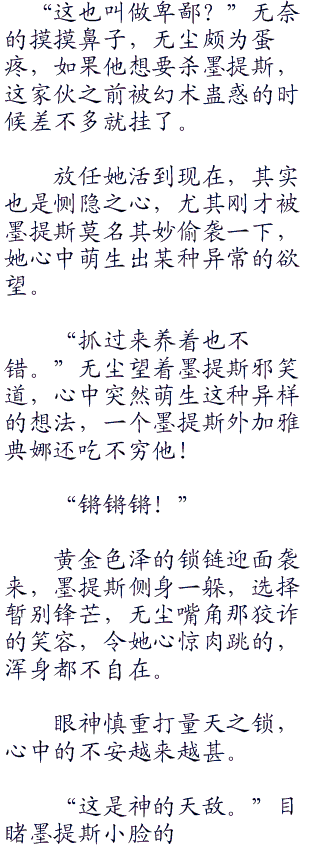 “这也叫做卑鄙？”无奈
的摸摸鼻子，无尘颇为蛋
疼，如果他想要杀墨提斯，
这家伙之前被幻术蛊惑的时
候差不多就挂了。
放任她活到现在，其实
也是恻隐之心，尤其刚才被
墨提斯莫名其妙偷袭一下，
她心中萌生出某种异常的欲
望。
“抓过来养着也不
错。”无尘望着墨提斯邪笑
道，心中突然萌生这种异样
的想法，一个墨提斯外加雅
典娜还吃不穷他！
“锵锵锵！”
黄金色泽的锁链迎面袭
来，墨提斯侧身一躲，选择
暂别锋芒，无尘嘴角那狡诈
的笑容，令她心惊肉跳的，
浑身都不自在。
眼神慎重打量天之锁，
心中的不安越来越甚。
“这是神的天敌。”目
睹墨提斯小脸的